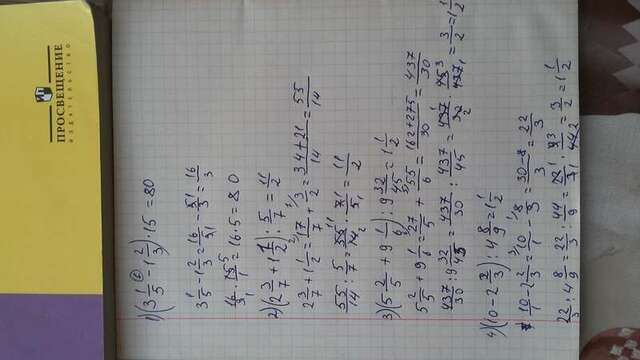 ПРОСВЕЩЕНИЕ
ИЗДАТЕЛЬСТВО
1) (3 1/5 - 1 2/3) · 15 = 80
3 1/5 - 1 2/3 = 16/5 - 5/3 = 16/3
16/3 · 15/1 = 16 · 5 = 80
2) (2 3/7 + 1 1/2) : 5/7 = 11/2
2 3/7 + 1 1/2 = 17/7 + 3/2 = 34+21/14 = 55/14
55/14 : 5/7 = 55/14 · 7/5 = 11/2
3) (5 2/5 + 9 1/6) : 9 32/45 = 1 1/2
5 2/5 + 9 1/6 = 27/5 + 55/6 = 162+275/30 = 437/30
437/30 : 9 32/45 = 437/30 : 437/45 = 437/30 · 45/437 = 3/2 = 1 1/2
4) (10 - 2 2/3) : 4 8/9 = 1 1/2
10/1 - 2 2/3 = 10/1 - 8/3 = 30-8/3 = 22/3
22/3 : 4 8/9 = 22/3 : 44/9 = 22/3 · 9/44 = 3/2 = 1 1/2